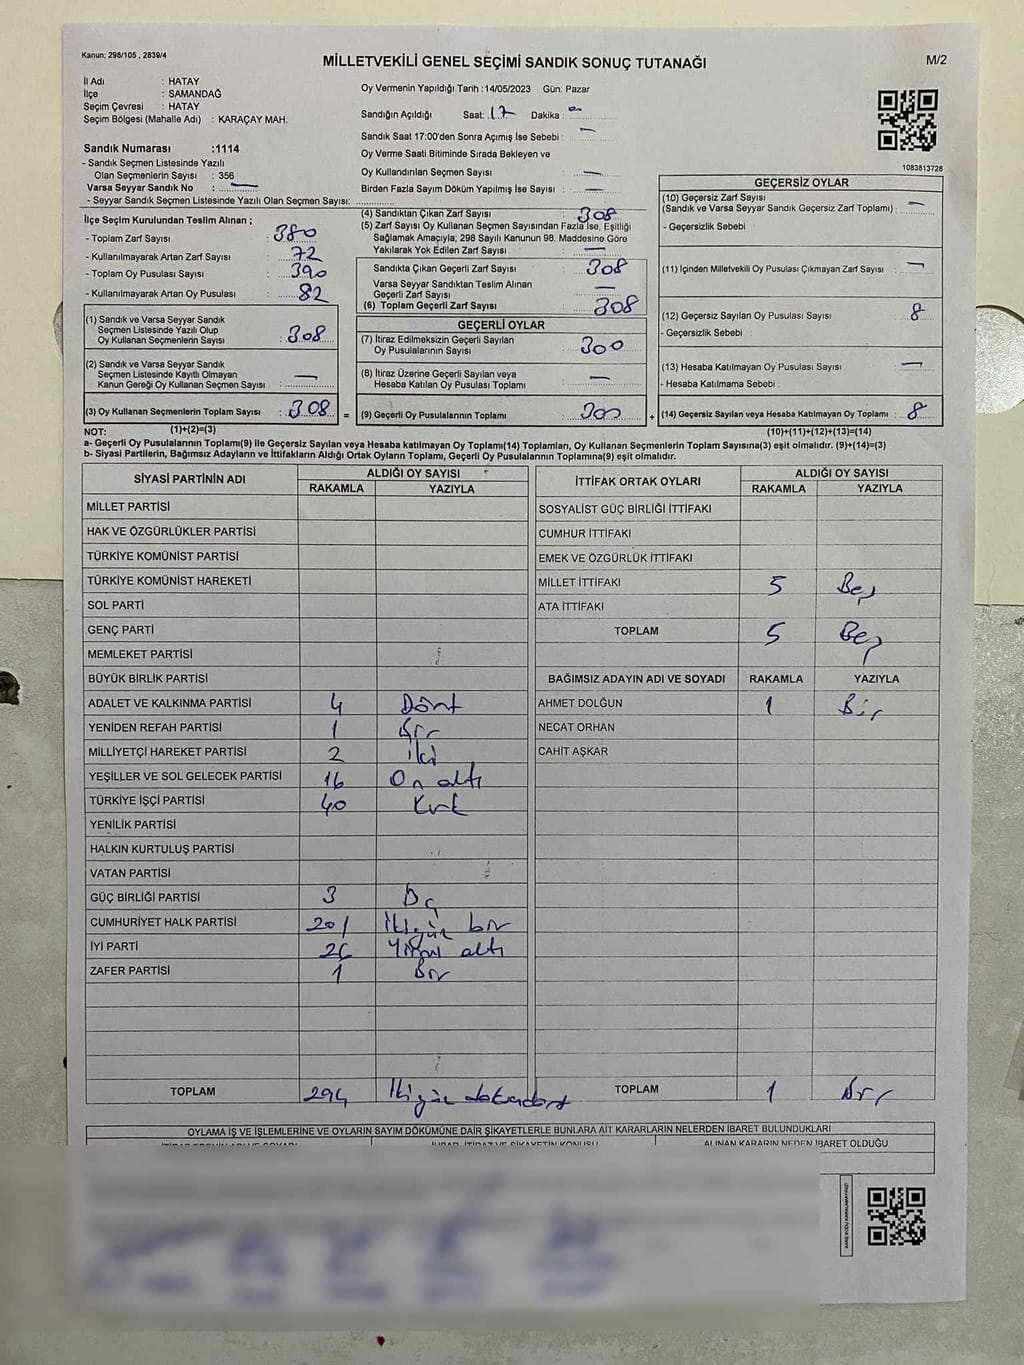 Kanun: 298/105 , 2839/4
MİLLETVEKİLİ GENEL SEÇİMİ SANDIK SONUÇ TUTANAĞI
M/2
İl Adı : HATAY
İlçe : SAMANDAĞ
Seçim Çevresi : HATAY
Seçim Bölgesi (Mahalle Adı) : KARAÇAY MAH.
Sandık Numarası :1114
- Sandık Seçmen Listesinde Yazılı
Olan Seçmenlerin Sayısı : 356
Varsa Seyyar Sandık No : —
- Seyyar Sandık Seçmen Listesinde Yazılı Olan Seçmen Sayısı:
Oy Vermenin Yapıldığı Tarih :14/05/2023 Gün: Pazar
Sandığın Açıldığı Saat: 17 Dakika :
Sandık Saat 17:00'den Sonra Açılmış İse Sebebi : —
Oy Verme Saati Bitiminde Sırada Bekleyen ve
Oy Kullandırılan Seçmen Sayısı : —
Birden Fazla Sayım Döküm Yapılmış İse Sayısı : —
1083813728
İlçe Seçim Kurulundan Teslim Alınan ;
- Toplam Zarf Sayısı : 380
- Kullanılmayarak Artan Zarf Sayısı : 72
- Toplam Oy Pusulası Sayısı : 390
- Kullanılmayarak Artan Oy Pusulası : 82
(1) Sandık ve Varsa Seyyar Sandık
Seçmen Listesinde Yazılı Olup
Oy Kullanan Seçmenlerin Sayısı : 308
(2) Sandık ve Varsa Seyyar Sandık
Seçmen Listesinde Kayıtlı Olmayan
Kanun Gereği Oy Kullanan Seçmen Sayısı : —
(3) Oy Kullanan Seçmenlerin Toplam Sayısı : 308 =
(4) Sandıktan Çıkan Zarf Sayısı : 308
(5) Zarf Sayısı Oy Kullanan Seçmen Sayısından Fazla İse, Eşitliği
Sağlamak Amacıyla; 298 Sayılı Kanunun 98. Maddesine Göre
Yakılarak Yok Edilen Zarf Sayısı : —
Sandıkta Çıkan Geçerli Zarf Sayısı : 308
Varsa Seyyar Sandıktan Teslim Alınan
Geçerli Zarf Sayısı : —
(6) Toplam Geçerli Zarf Sayısı : 308
GEÇERLİ OYLAR
(7) İtiraz Edilmeksizin Geçerli Sayılan
Oy Pusulalarının Sayısı : 300
(8) İtiraz Üzerine Geçerli Sayılan veya
Hesaba Katılan Oy Pusulası Toplamı : —
(9) Geçerli Oy Pusulalarının Toplamı : 300 +
GEÇERSİZ OYLAR
(10) Geçersiz Zarf Sayısı
(Sandık ve Varsa Seyyar Sandık Geçersiz Zarf Toplamı) : —
- Geçersizlik Sebebi
(11) İçinden Milletvekili Oy Pusulası Çıkmayan Zarf Sayısı : —
(12) Geçersiz Sayılan Oy Pusulası Sayısı : 8
- Geçersizlik Sebebi :
(13) Hesaba Katılmayan Oy Pusulası Sayısı : —
- Hesaba Katılmama Sebebi :
(14) Geçersiz Sayılan veya Hesaba Katılmayan Oy Toplamı : 8
NOT: (1)+(2)=(3) (10)+(11)+(12)+(13)=(14)
a- Geçerli Oy Pusulalarının Toplamı(9) ile Geçersiz Sayılan veya Hesaba katılmayan Oy Toplamı(14) Toplamları, Oy Kullanan Seçmenlerin Toplam Sayısına(3) eşit olmalıdır. (9)+(14)=(3)
b- Siyasi Partilerin, Bağımsız Adayların ve İttifakların Aldığı Ortak Oyların Toplamı, Geçerli Oy Pusulalarının Toplamına(9) eşit olmalıdır.
SİYASİ PARTİNİN ADI ALDIĞI OY SAYISI
RAKAMLA YAZIYLA
MİLLET PARTİSİ
HAK VE ÖZGÜRLÜKLER PARTİSİ
TÜRKİYE KOMÜNİST PARTİSİ
TÜRKİYE KOMÜNİST HAREKETİ
SOL PARTİ
GENÇ PARTİ
MEMLEKET PARTİSİ
BÜYÜK BİRLİK PARTİSİ
ADALET VE KALKINMA PARTİSİ 4 Dört
YENİDEN REFAH PARTİSİ 1 Bir
MİLLİYETÇİ HAREKET PARTİSİ 2 iki
YEŞİLLER VE SOL GELECEK PARTİSİ 16 On altı
TÜRKİYE İŞÇİ PARTİSİ 40 Kırk
YENİLİK PARTİSİ
HALKIN KURTULUŞ PARTİSİ
VATAN PARTİSİ
GÜÇ BİRLİĞİ PARTİSİ 3 Üç
CUMHURİYET HALK PARTİSİ 201 İkiyüz bir
İYİ PARTİ 26 Yirmi altı
ZAFER PARTİSİ 1 Bir
TOPLAM 294 İkiyüz doksandört
İTTİFAK ORTAK OYLARI ALDIĞI OY SAYISI
RAKAMLA YAZIYLA
SOSYALİST GÜÇ BİRLİĞİ İTTİFAKI
CUMHUR İTTİFAKI
EMEK VE ÖZGÜRLÜK İTTİFAKI
MİLLET İTTİFAKI 5 Beş
ATA İTTİFAKI
TOPLAM 5 Beş
BAĞIMSIZ ADAYIN ADI VE SOYADI RAKAMLA YAZIYLA
AHMET DOLĞUN 1 Bir
NECAT ORHAN
CAHİT AŞKAR
TOPLAM 1 Bir
OYLAMA İŞ VE İŞLEMLERİNE VE OYLARIN SAYIM DÖKÜMÜNE DAİR ŞİKAYETLERLE BUNLARA AİT KARARLARIN NELERDEN İBARET BULUNDUKLARI
İHBAR, İTİRAZ VE ŞİKAYETİN KONUSU ALINAN KARARIN NEDEN İBARET OLDUĞU